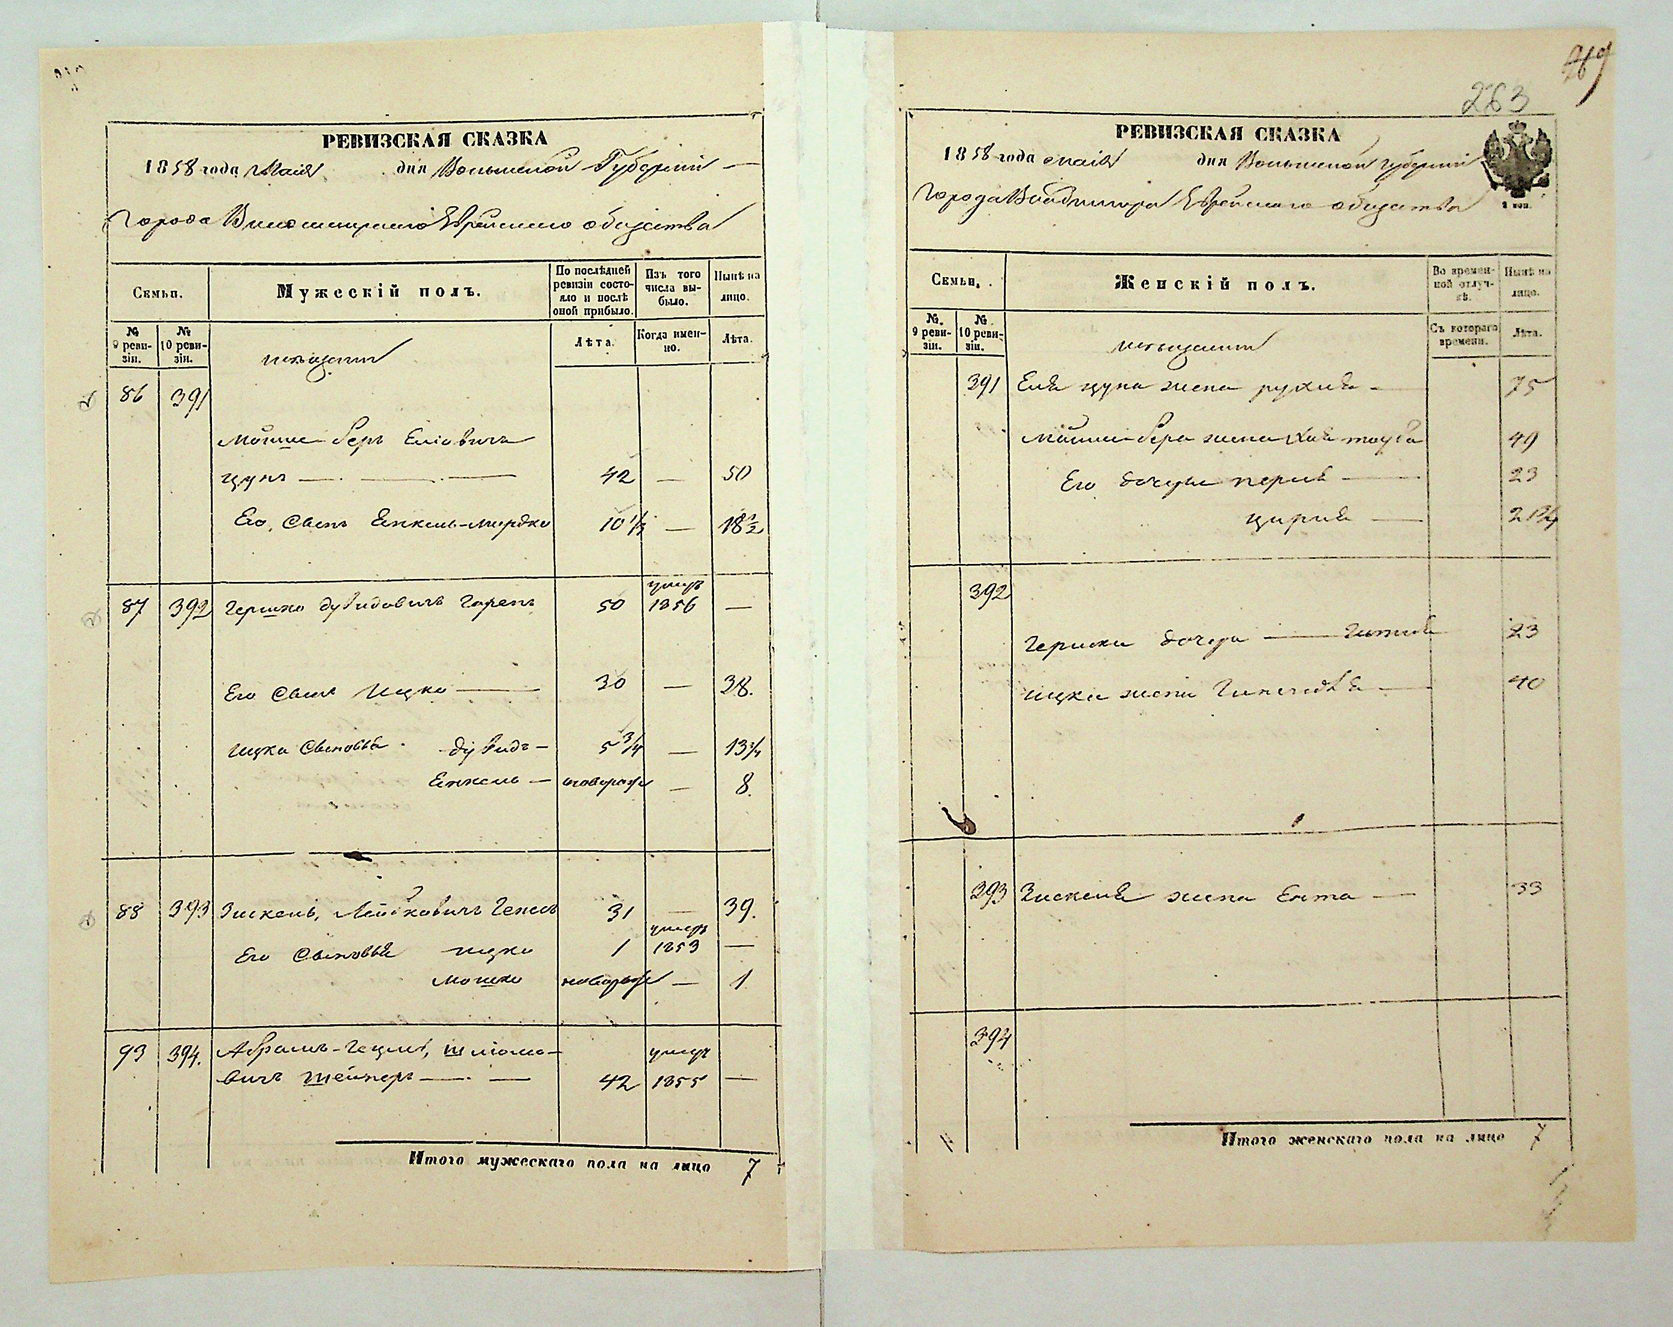 РЕВИЗСКАЯ СКАЗКА
1858 года Маія дня Волынской Губерніи —
Города Еврейскаго общества
Семьи.
Мужескій полъ.
По послѣдней ревизіи состояло и послѣ оной прибыло.
Изъ того числа выбыло.
Нынѣ на лицо.
№ 9 ревизіи.
№ 10 ревизіи.
мѣщане
Лѣта.
Когда именно.
Лѣта.
86 391
Мошко Беръ Еліовичъ
цукъ — 42 — 50
Его Сынъ Янкель-Мордко 10 1/2 — 18 1/2
умеръ
87 392 Гершко Дувидовичъ Горенъ 50 1856 —
Его Сынъ Ицко — 30 — 38.
Ицка Сыновья Дувидъ — 5 3/4 — 13 3/4
Янкель — новорож — 8.
88 393 Зискель Лейбовичъ 31 — 39.
умеръ
Его Сыновья Ицко 1 1853 —
Мошко новорож — 1
93 394. Абрамъ-Гецель, Шліомо- умеръ
вичъ Штейнеръ — 42 1855 —
Итого мужескаго пола на лицо 7
269
263
РЕВИЗСКАЯ СКАЗКА
1858 года Маія дня Волынской Губерніи
Города Владимира Еврейскаго общества
Семьи.
Женскій полъ.
Во временной отлучкѣ.
Нынѣ на лицо.
№ 9 ревизіи.
№ 10 ревизіи.
мѣщане
Съ котораго времени.
Лѣта.
391 Еля цука жена рухля — 75
Мошка Бера жена Хая тауба 49
Его дочери перля — 23
цирля — 21 3/4
392
Гершка дочерь — Гитля 23
Ицка жена — 40
393 Зискеля жена Ента — 33
394
Итого женскаго пола на лицо 7